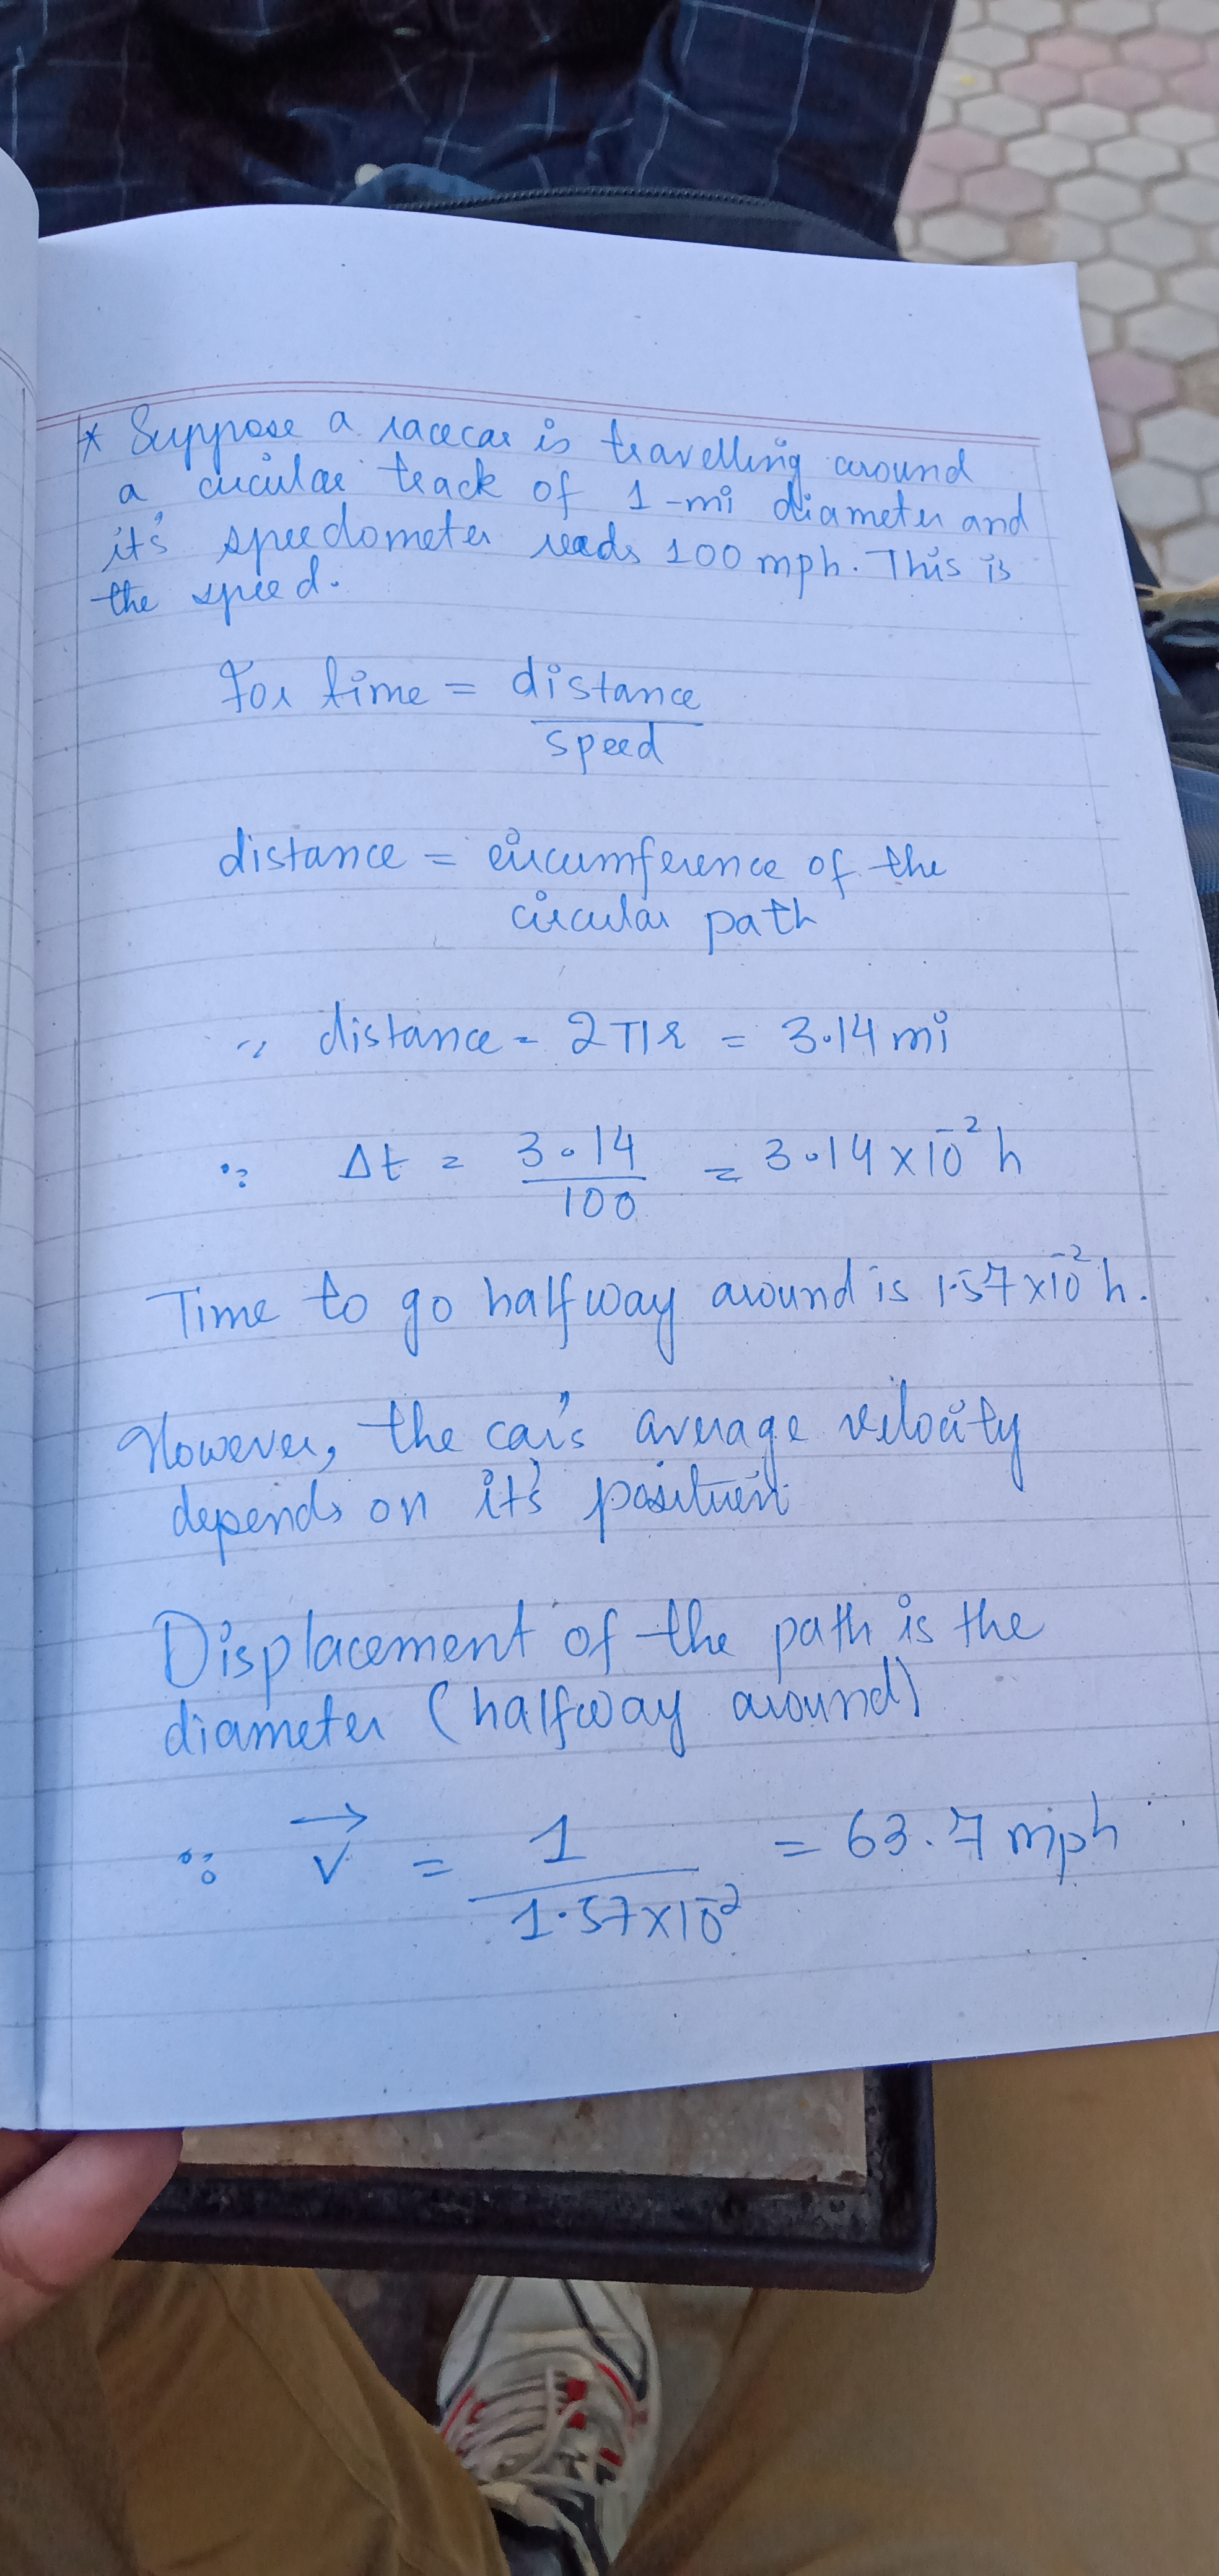 * Suppose a racecar is travelling around
a circular track of 1-mi diameter and
it's speedometer reads 100 mph. This is
the speed.
For time = distance
speed
distance = circumference of the
circular path
∵ distance = 2πr = 3.14 mi
∵ Δt = 3.14 = 3.14 x 10⁻² h
100
Time to go halfway around is 1.57 x 10⁻² h.
However, the car's average velocity
depends on it's position
Displacement of the path is the
diameter (halfway around)
∴ v⃗ = 1 = 63.7 mph
1.57 x 10⁻²